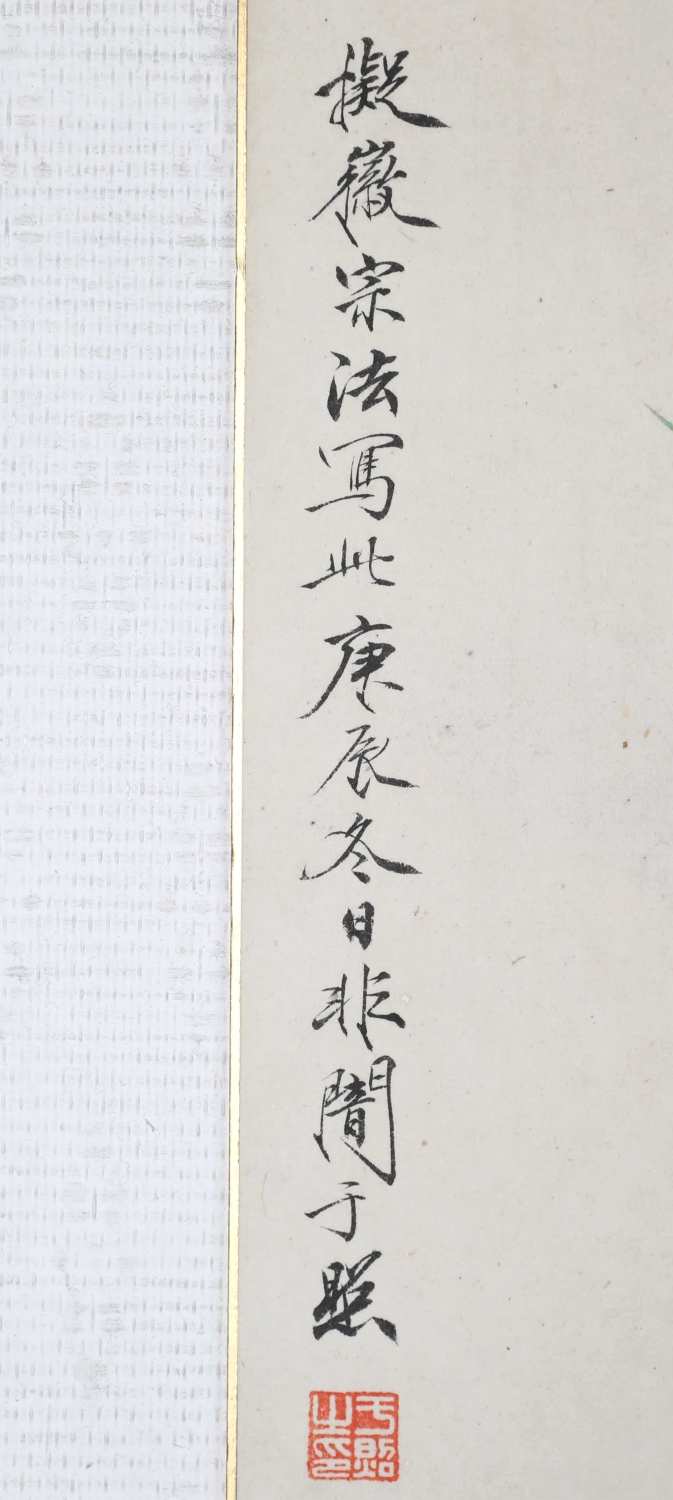 擬徽宗法寫此庚辰冬日非闇于照
于照之印